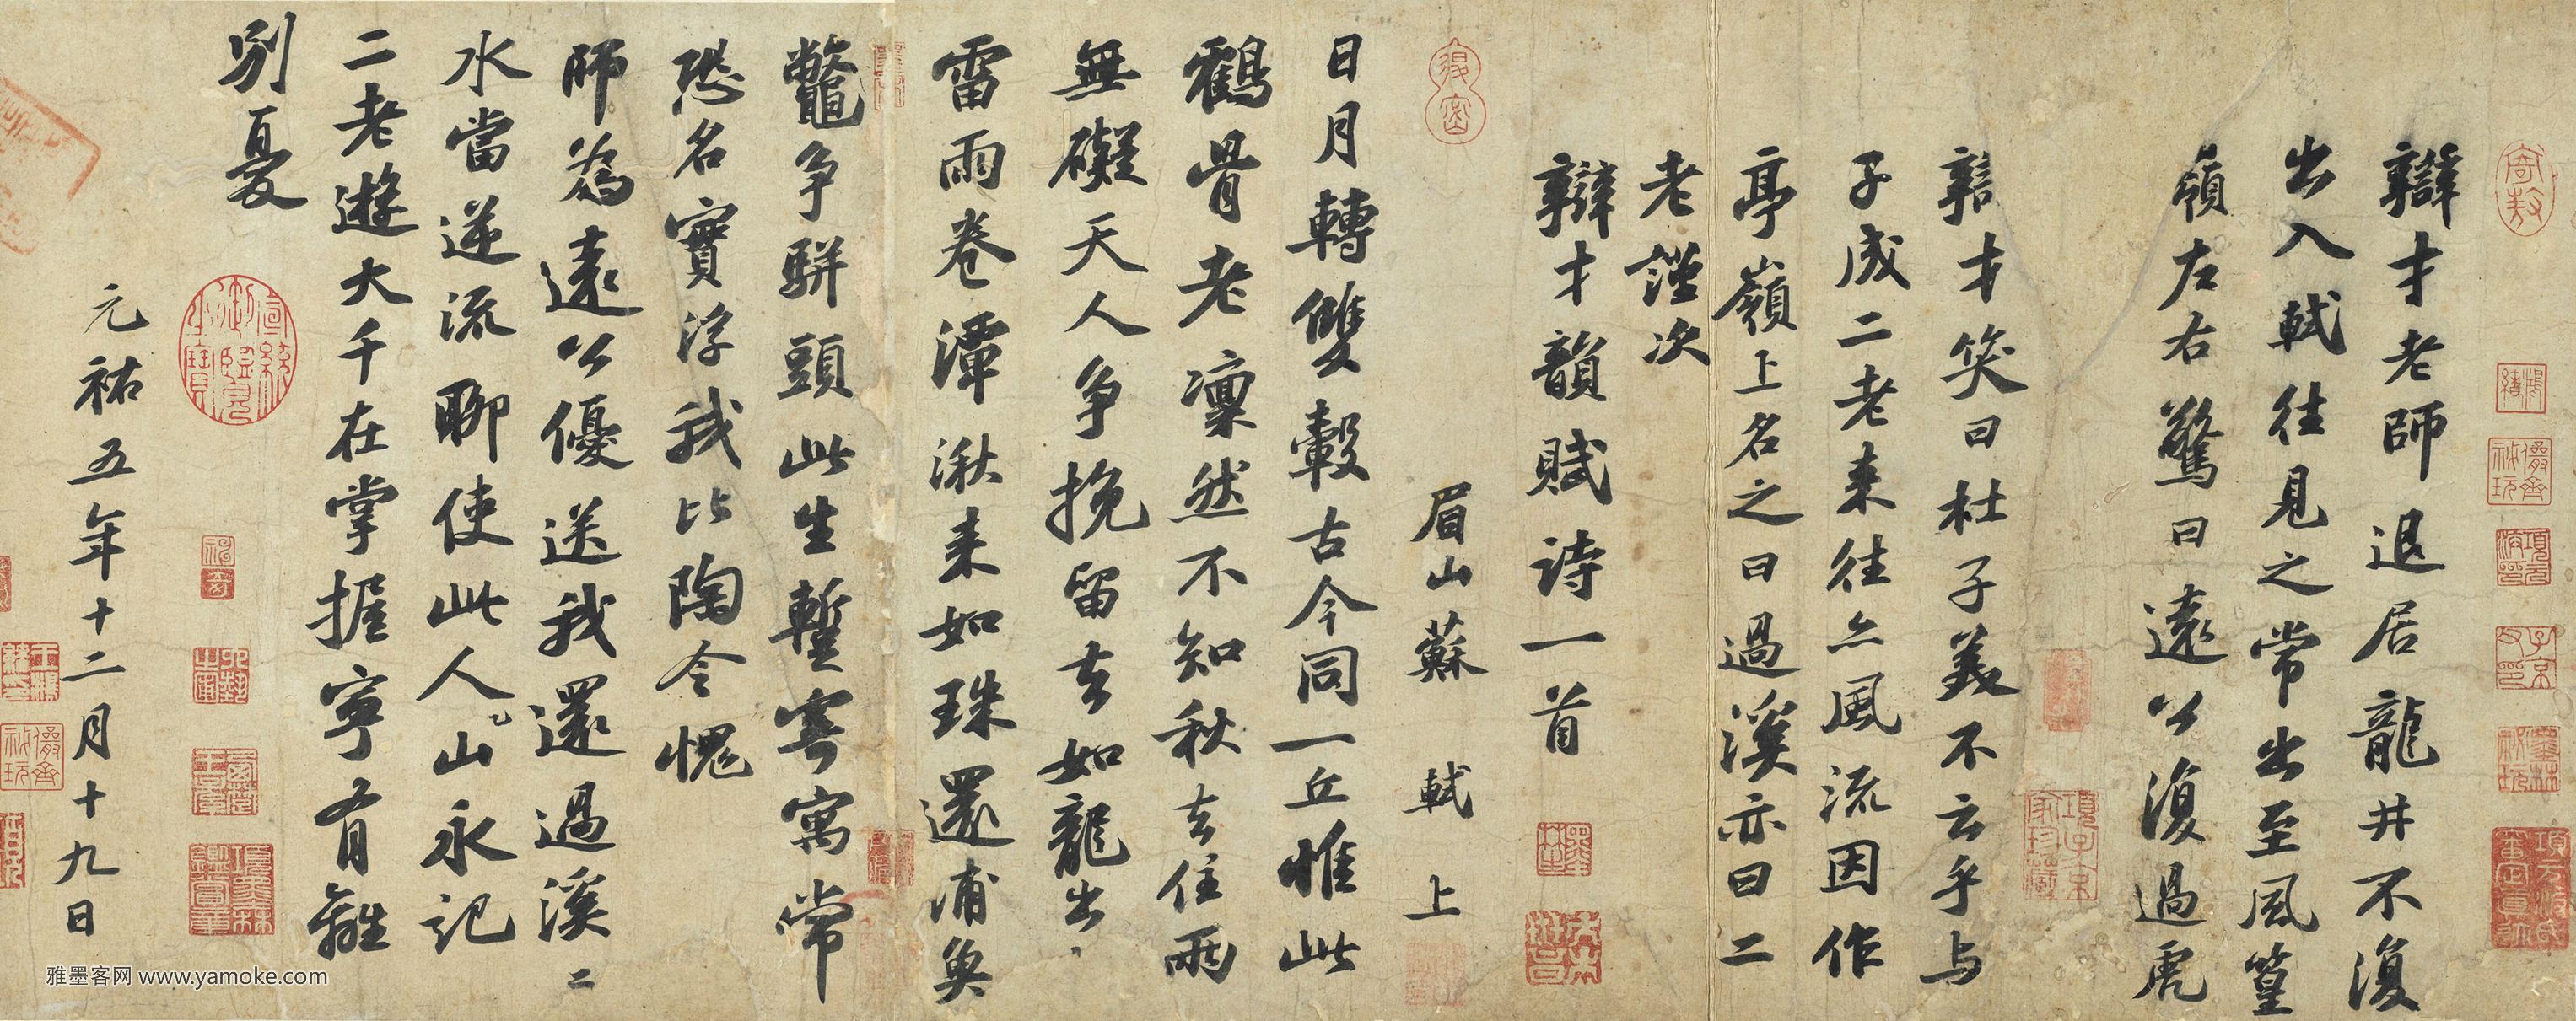 辯才老師退居龍井不復
出入軾往見之常出至風篁
嶺左右驚曰遠公復過虎
辯才笑曰杜子美不云乎与
子成二老来往亦風流因作
亭嶺上名之曰過溪亦曰二
老謹次
辯才韻賦诗一首
眉山蘇軾上
日月轉雙轂古今同一丘惟此
鶴骨老凜然不知秋去住两
無礙天人争挽留去如龍出
雷雨卷潭湫来如珠還浦魚
鼈争駢頭此生暫寄寓常
恐名實浮我比陶令愧
師為遠公優送我還過溪
水當逆流聊使此人山永記
二老遊大千在掌握寧有離
别憂
元祐五年十二月十九日
雅墨客网 www.yamoke.com